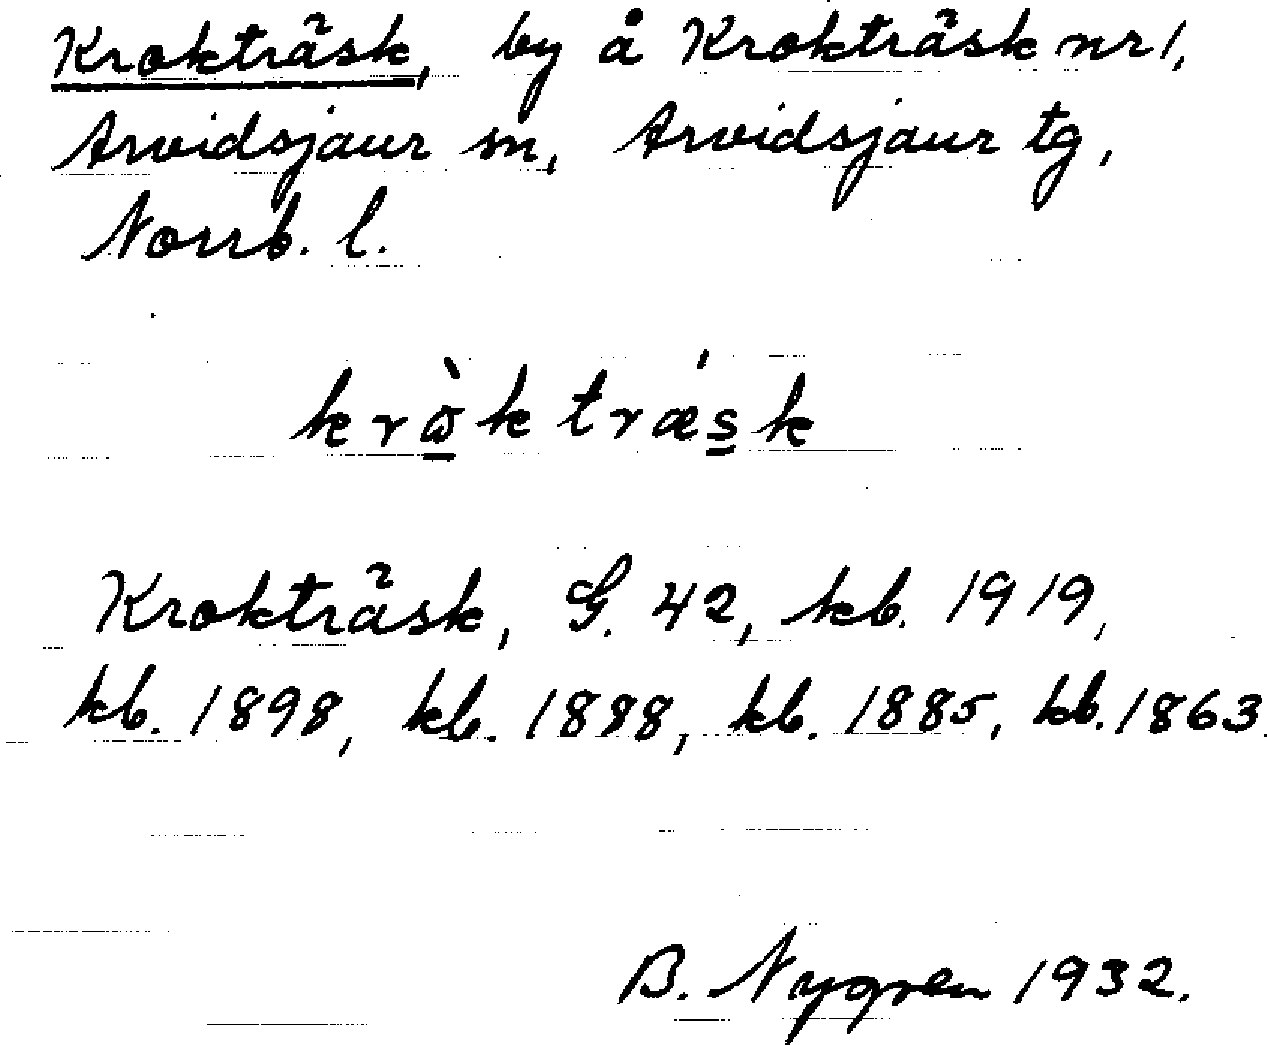 Krokträsk, by å Krokträsk nr 1,
Arvidsjaur sn, Arvidsjaur tg,
Norrb. l.
krὼktræ´sk
Krokträsk, G. 42, kb. 1919,
kb. 1898, kb. 1888, kb. 1885, kb. 1863.
B. Nygren 1932.